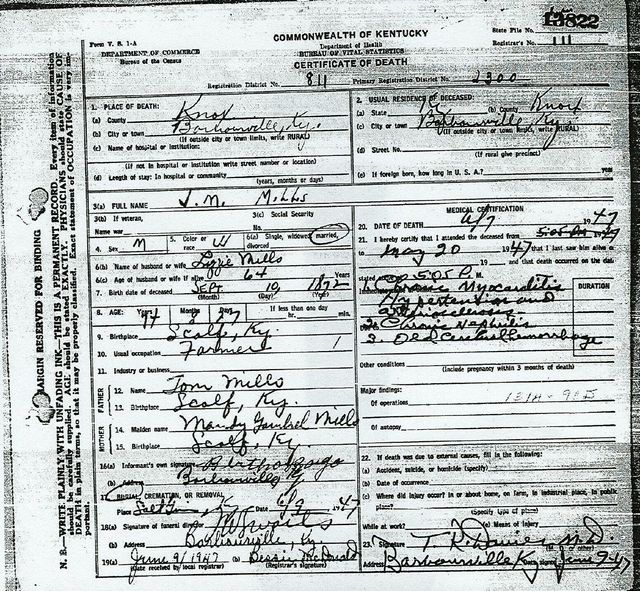 13822
Form V. S. 1-A
COMMONWEALTH OF KENTUCKY
State File No.
DEPARTMENT OF COMMERCE
Department of Health
Registrar's No. 111
Bureau of the Census
BUREAU OF VITAL STATISTICS
CERTIFICATE OF DEATH
Registration District No. 811
Primary Registration District No. 2300
MARGIN RESERVED FOR BINDING
N. B.—WRITE PLAINLY, WITH UNFADING INK—THIS IS A PERMANENT RECORD. Every item of information
should be carefully supplied. AGE should be stated EXACTLY. PHYSICIANS should state CAUSE OF
DEATH in plain terms, so that it may be properly classified. Exact statement of OCCUPATION is very im-
portant.
1. PLACE OF DEATH:
(a) County Knox
(b) City or town Barbourville, Ky.
(If outside city or town limits, write RURAL)
(c) Name of hospital or institution:
(If not in hospital or institution write street number or location)
(d) Length of stay: In hospital or community
(years, months or days)
2. USUAL RESIDENCE OF DECEASED:
(a) State Ky. (b) County Knox
(c) City or town Barbourville, Ky.
(If outside city or town limits, write RURAL)
(d) Street No.
(If rural give precinct)
(e) If foreign born, how long in U. S. A.? years
3(a) FULL NAME J. M. Mills
3(b) If veteran,
Name war
3(c) Social Security
No.
4. Sex M
5. Color or race W
6(a) Single, widowed, married, divorced
6(b) Name of husband or wife Lizzie Mills
6(c) Age of husband or wife if alive 64 Years
7. Birth date of deceased Sept. 19 1872
(Month) (Day) (Year)
8. AGE: Years Months Days If less than one day
hr. min.
9. Birthplace Scalf, Ky.
10. Usual occupation Farmer
11. Industry or business
FATHER
12. Name Tom Mills
13. Birthplace Scalf, Ky.
MOTHER
14. Maiden name Mandy Gambrel Mills
15. Birthplace Scalf, Ky.
16(a) Informant's own signature
(b) Address Barbourville, Ky.
17. BURIAL, CREMATION, OR REMOVAL
Place Ky. 6/9 1947
18(a) Signature of funeral director
(b) Address Barbourville, Ky.
19(a) June 9, 1947 (b) Bessie McDonald
(Date received by local registrar) (Registrar's signature)
MEDICAL CERTIFICATION
20. DATE OF DEATH 6/7 1947
21. I hereby certify that I attended the deceased from
May 20 1947 that I last saw him alive
19 and that death occurred on the date
stated 5:05 P. M.
DURATION
1. Chronic Myocarditis
Hypertension and
arteriosclerosis
2. Chronic Nephritis
3. Old Cerebral hemorrhage
Other conditions
(Include pregnancy within 3 months of death)
Major findings:
Of operations
Of autopsy
22. If death was due to external causes, fill in the following:
(a) Accident, suicide, or homicide (specify)
(b) Date of occurrence
(c) Where did injury occur? In or about home, on farm, in industrial place, in public
place?
(Specify type of place)
While at work? (e) Means of injury
23. Signature T. R. Davies M.D.
Address Barbourville Ky Date signed June 9-47